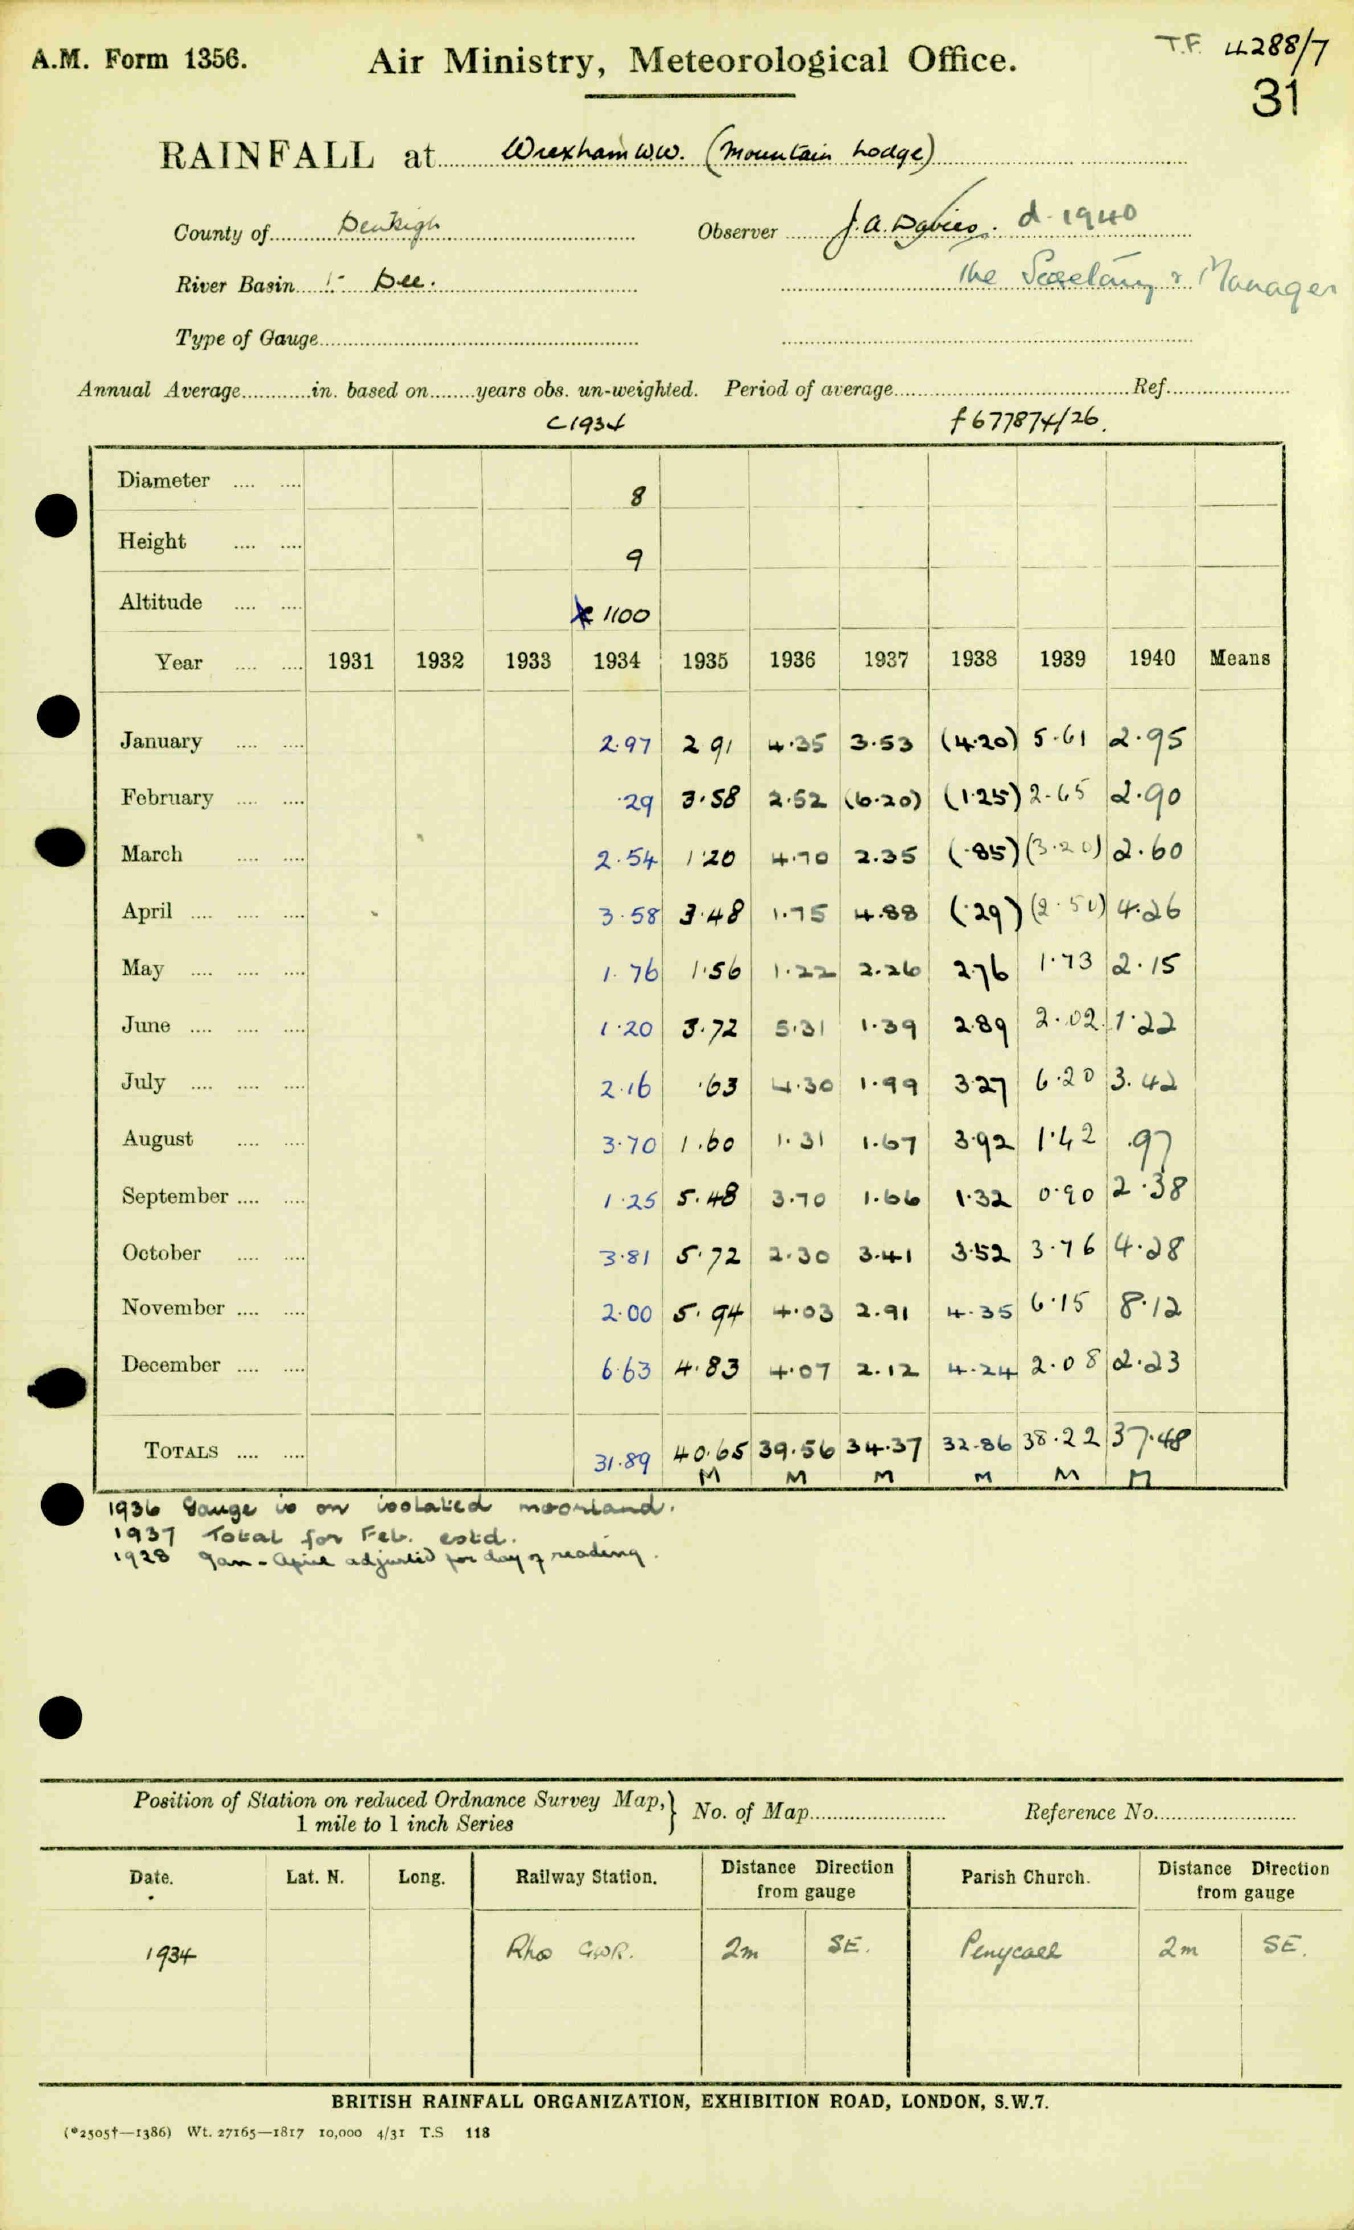 T.F. 4288/7
A.M. Form 1356. Air Ministry, Meteorological Office.
31
RAINFALL at Wrexham W.W. (Mountain Lodge)
County of Denbigh Observer J.A. Davies. d. 1940
River Basin Dee. The Secretary & Manager
Type of Gauge
Annual Average in. based on years obs. un-weighted. Period of average Ref.
C1934 f 677874/26.
Diameter 8
Height 9
Altitude 1100
Year 1931 1932 1933 1934 1935 1936 1937 1938 1939 1940 Means
January 2.97 2 91 4.35 3.53 (4.20) 5.61 2.95
February .29 3.58 2.52 (6.20) (1.25) 2.65 2.90
March 2.54 1.20 4.70 2.35 (.85) (3.20) 2.60
April 3.58 3.48 1.75 4.88 (.29) (2.50) 4.26
May 1.76 1.56 1.22 2.26 2.76 1.73 2.15
June 1.20 3.72 5.31 1.39 2.89 2.02 1.22
July 2.16 .63 4.30 1.99 3.27 6.20 3.42
August 3.70 1.60 1.31 1.67 3.92 1.42 .97
September 1.25 5.48 3.70 1.66 1.32 0.90 2.38
October 3.81 5.72 2.30 3.41 3.52 3.76 4.28
November 2.00 5.94 4.03 2.91 4.35 6.15 8.12
December 6.63 4.83 4.07 2.12 4.24 2.08 2.23
TOTALS 31.89 40.65 39.56 34.37 32.86 38.22 37.48
M M M M M M
1936 Gauge is on isolated moorland.
1937 Total for Feb. estd.
1938 Jan - April adjusted for day of reading.
Position of Station on reduced Ordnance Survey Map, 1 mile to 1 inch Series } No. of Map Reference No.
Date. Lat. N. Long. Railway Station. Distance Direction from gauge Parish Church. Distance Direction from gauge
1934 Rhos GWR. 2m SE. Penycae 2m SE.
BRITISH RAINFALL ORGANIZATION, EXHIBITION ROAD, LONDON, S.W.7.
(*2505†—1386) Wt. 27165—1817 10,000 4/31 T.S 118